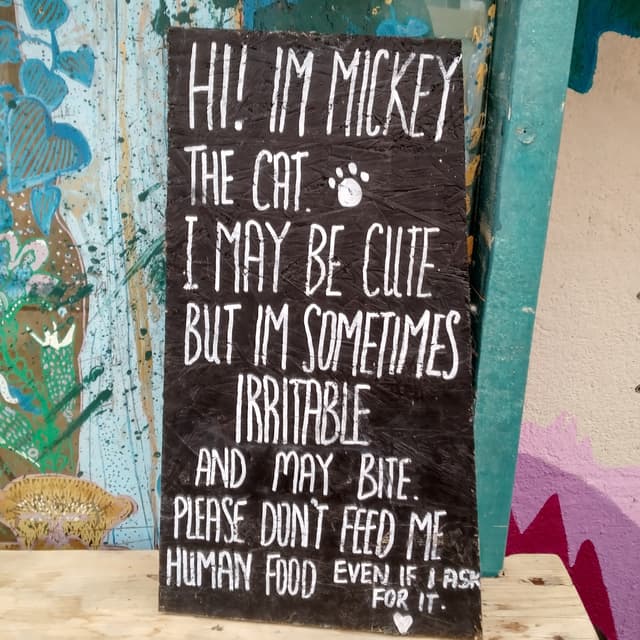 HI! IM MICKEY
THE CAT.
I MAY BE CUTE
BUT IM SOMETIMES
IRRITABLE
AND MAY BITE.
PLEASE DON'T FEED ME
HUMAN FOOD EVEN IF I ASK
FOR IT.